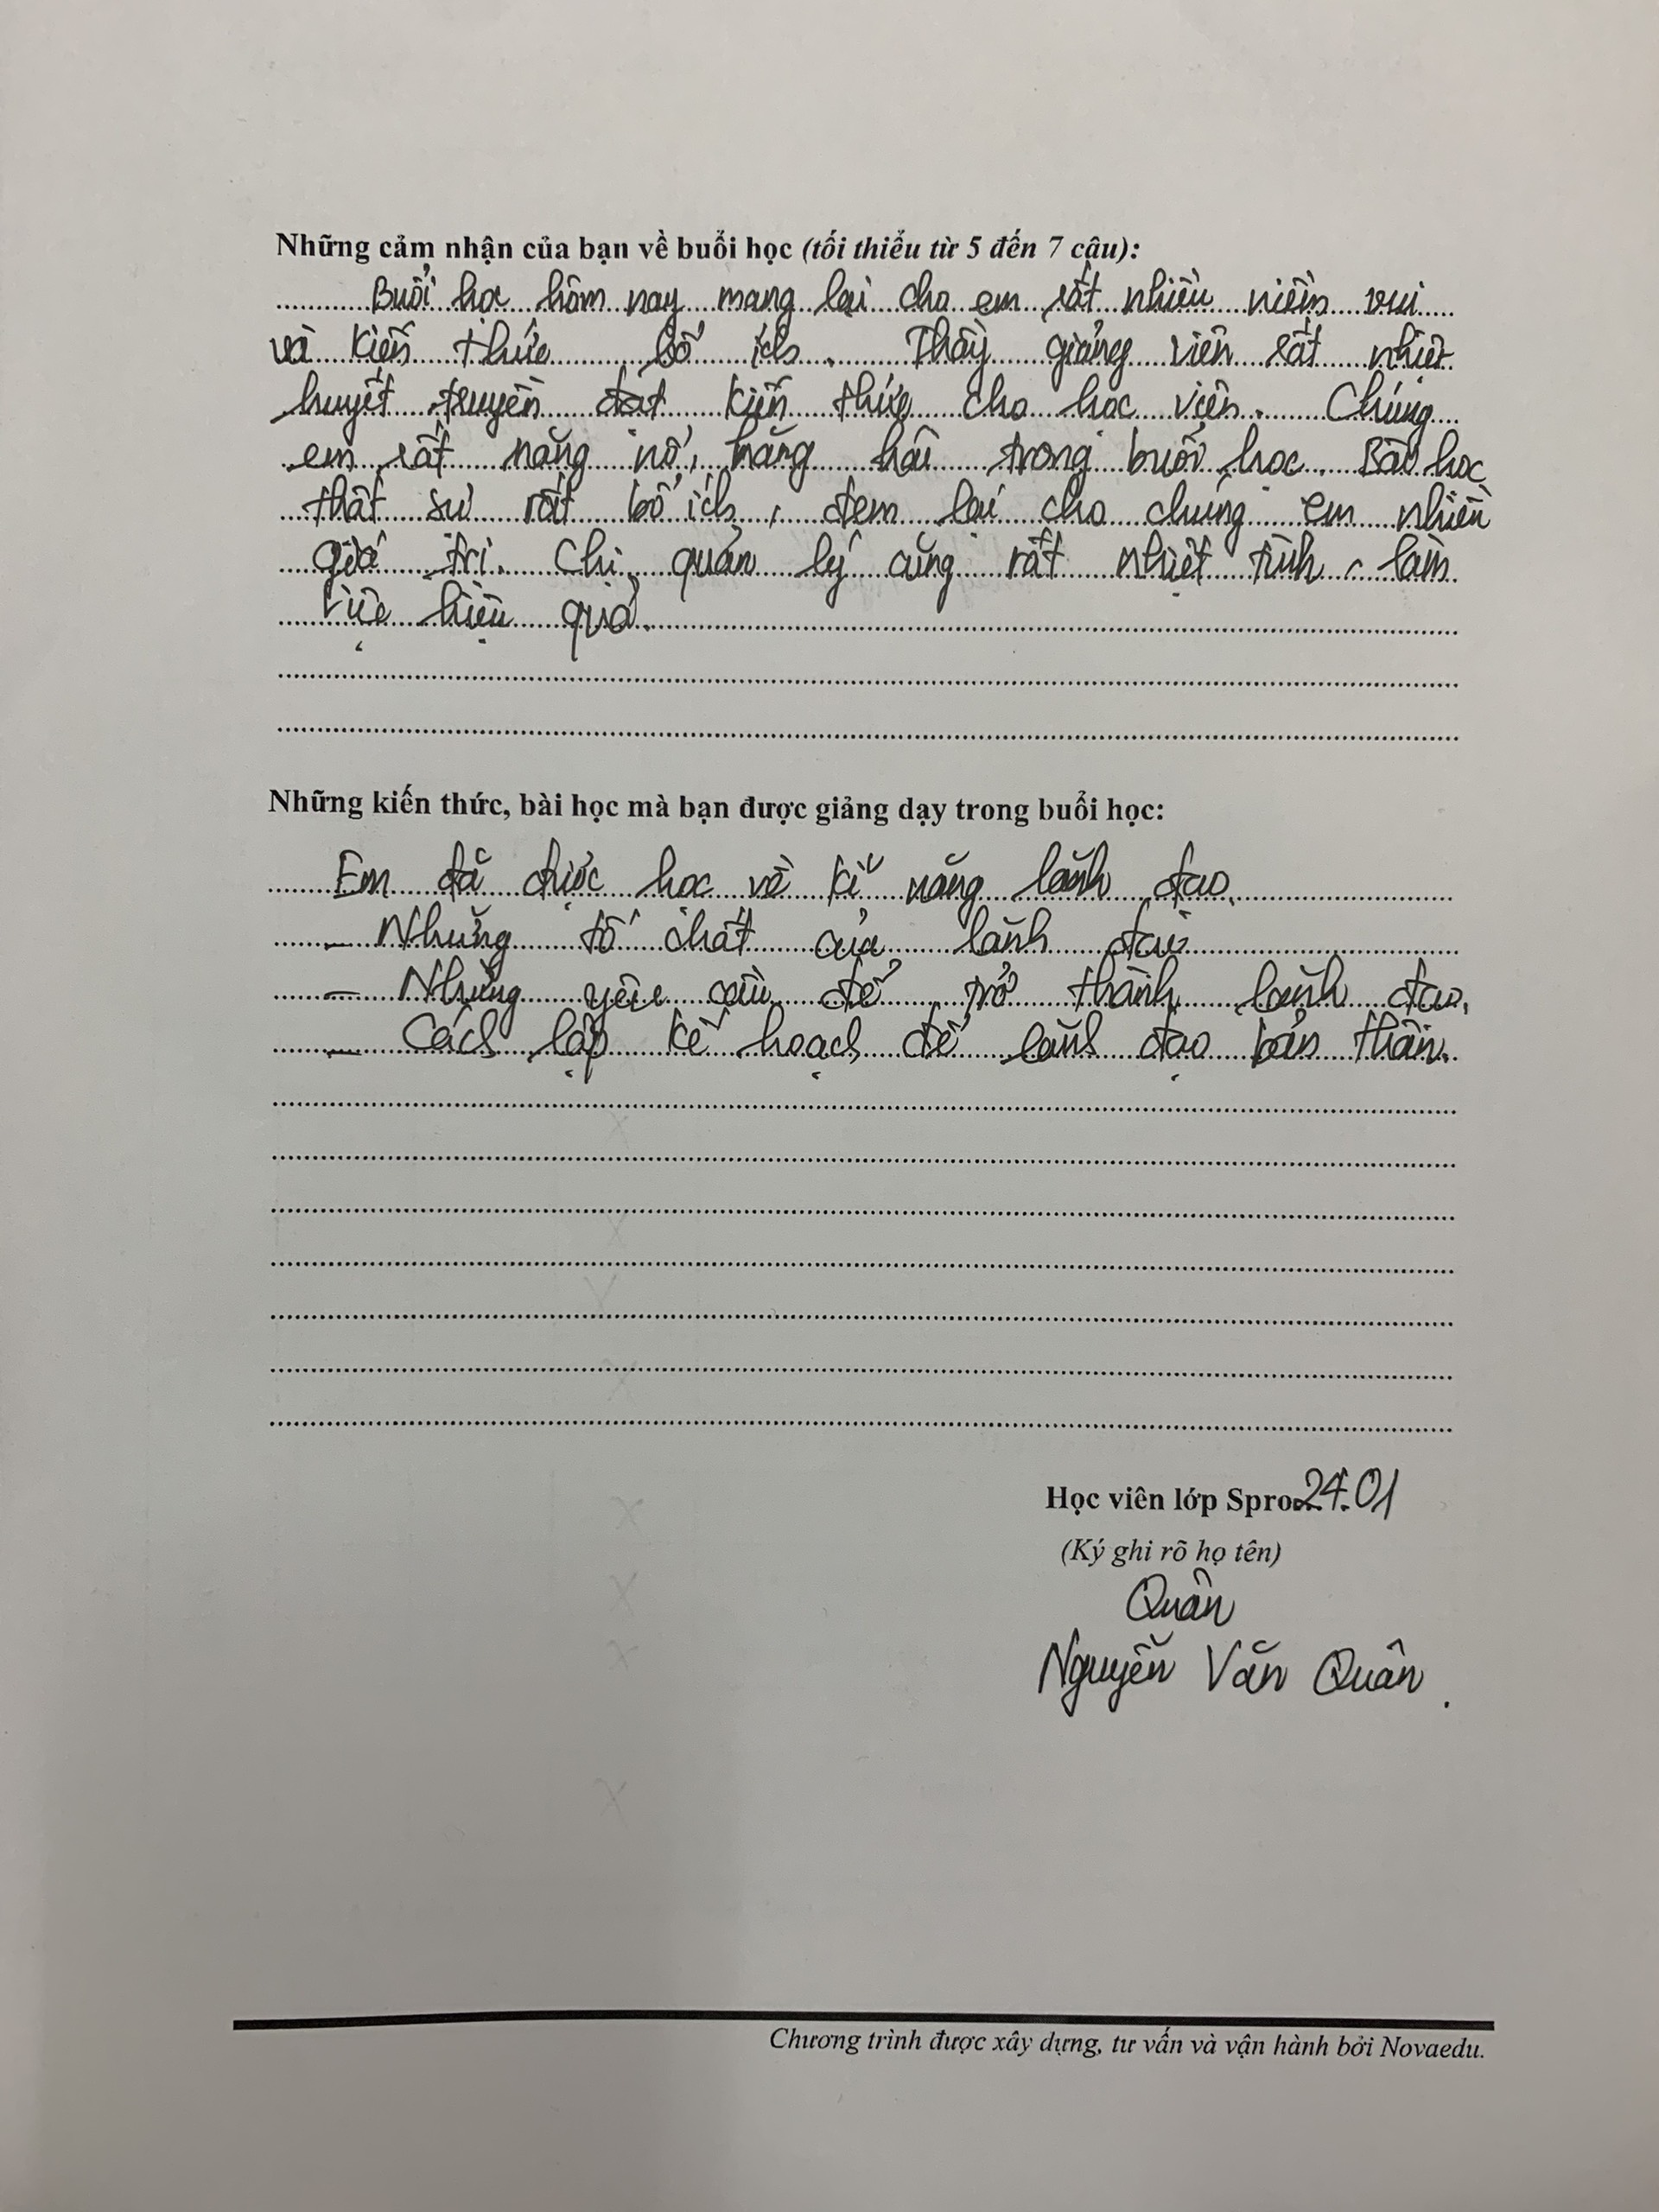 Những cảm nhận của bạn về buổi học (tối thiểu từ 5 đến 7 câu):
Buổi học hôm nay mang lại cho em rất nhiều niềm vui
và kiến thức bổ ích. Thầy giảng viên rất nhiệt
huyết truyền đạt kiến thức cho học viên. Chúng
em rất năng nổ, hăng hái trong buổi học. Bài học
thật sự rất bổ ích, đem lại cho chúng em nhiều
giá trị. Chị quản lý cũng rất nhiệt tình, làm
việc hiệu quả.
Những kiến thức, bài học mà bạn được giảng dạy trong buổi học:
Em đã được học về kĩ năng lãnh đạo.
- Những tố chất của lãnh đạo
- Những yêu cầu để trở thành lãnh đạo.
- Cách lập kế hoạch để lãnh đạo bản thân.
Học viên lớp Spro 24.01
(Ký ghi rõ họ tên)
Quân
Nguyễn Văn Quân.
Chương trình được xây dựng, tư vấn và vận hành bởi Novaedu.